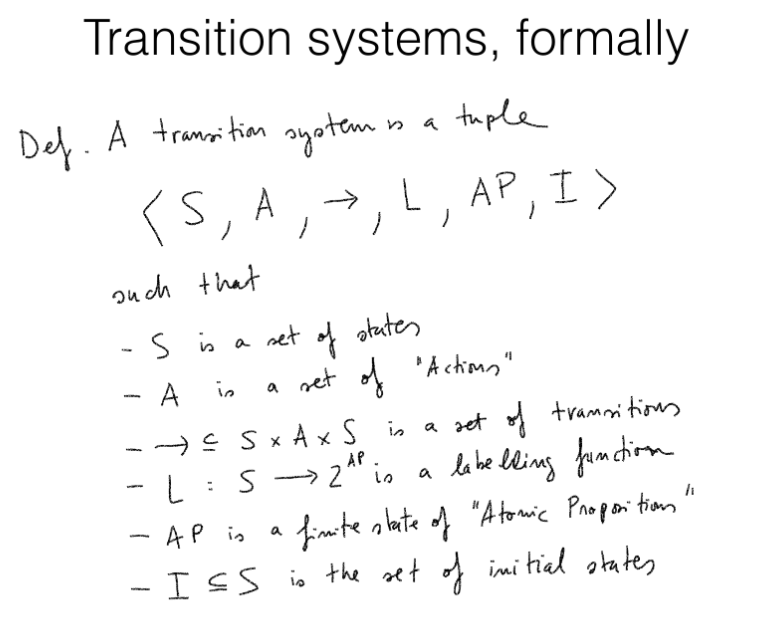 Transition systems, formally
Def. A transition system is a tuple
⟨ S , A , → , L , AP , I ⟩
such that
- S is a set of states
- A is a set of "Actions"
- → ⊆ S × A × S is a set of transitions
- L : S → 2^AP is a labelling function
- AP is a finite state of "Atomic Propositions"
- I ⊆ S is the set of initial states